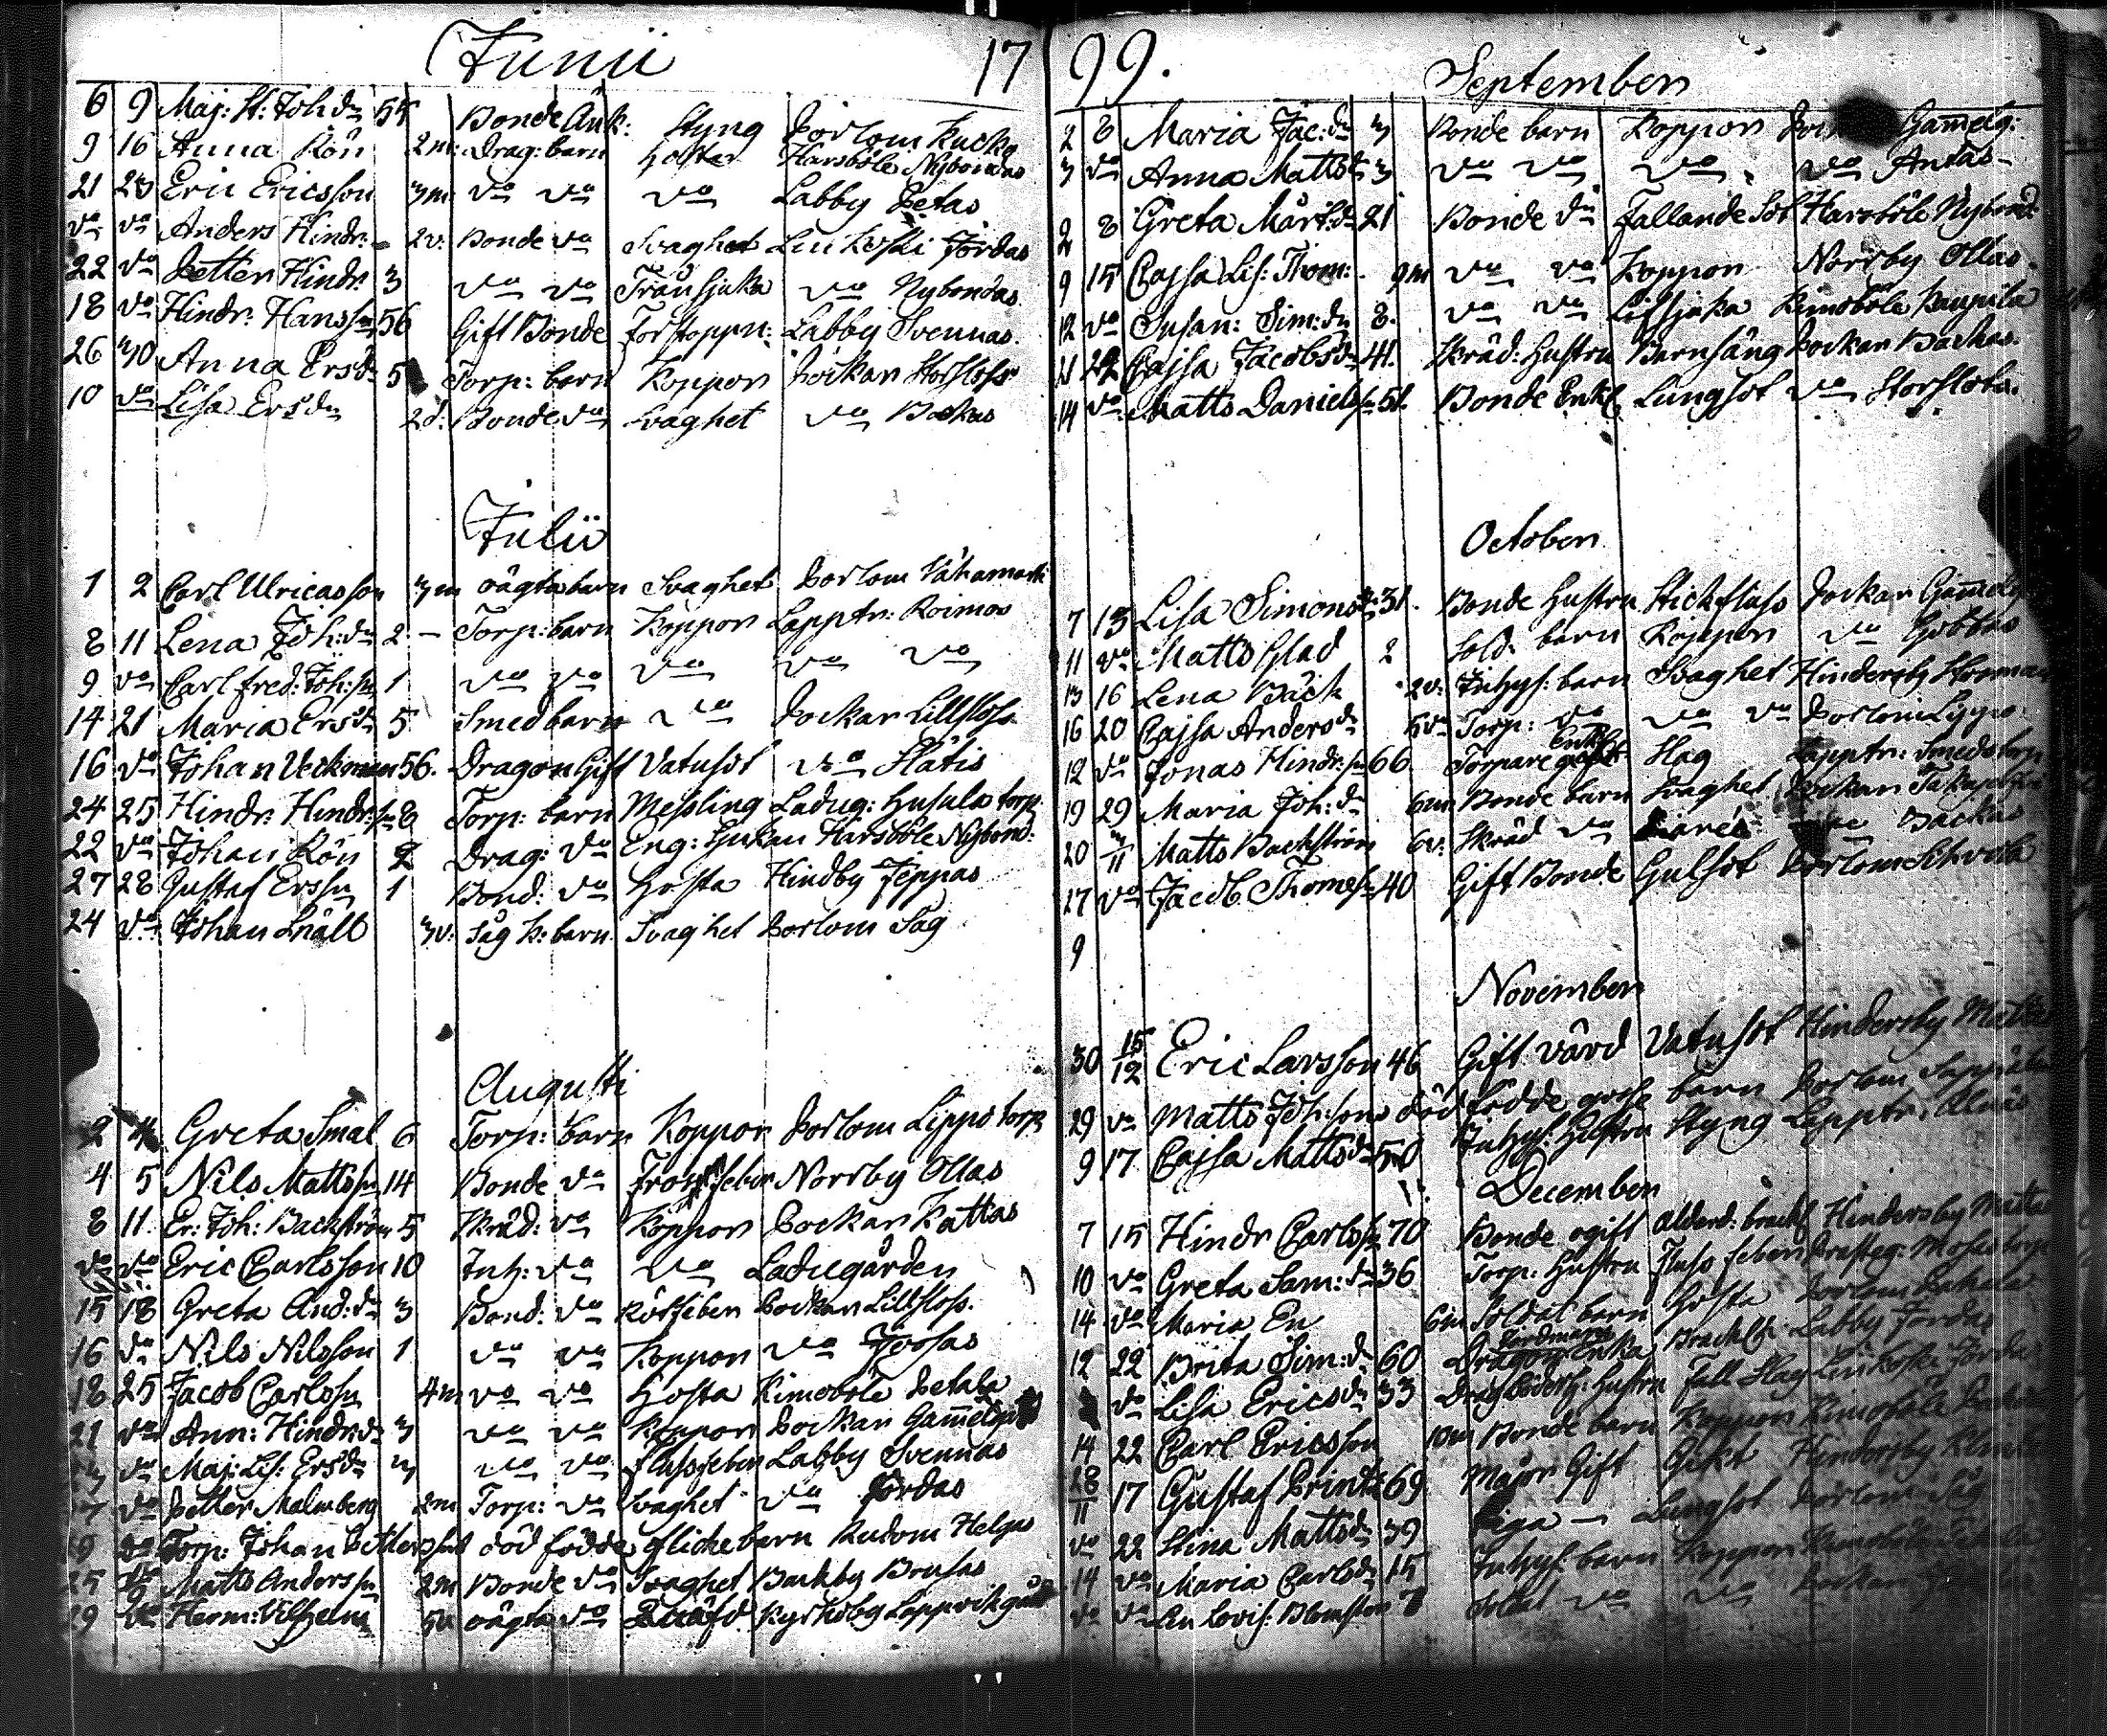 Junii 17
6 9 Maj: St: Joh:dr 54 Bonde Änk: Styng Porlom Kucko
9 16 Anna Rön 2m: Drag: barn Hosta Harsböle Nybondas
21 23 Eric Ericsson 3m do do do Labby Petas
do do Anders Hindr: 2v: Bonde do Svaghet Lin Koski Jordas
22 do Petter Hindr: 3 do do Trånsjuka do Nybondas
18 do Hindr: Hansson 56 Gift Bonde Förstoppn: Labby Svennas
26 30 Anna Ersdr 5 Torp: barn Koppor Pockar Storsloss
10 do Lisa Ersdr 2d: Bonde do Svaghet do Backas
Julii
1 2 Carl Ulricasson 3m oägta barn Svaghet Porlom
8 11 Lena Joh:dr 2 – Torp: barn Koppor Lapptr: Roimos
9 do Carl fred: Joh:sn 1 do do do do do
14 21 Maria Ersdr 5 Smed barn do Pockar Lillsloss
16 do Johan Veckman 56. Dragon Gift Vatusot do Slätis
24 25 Hindr: Hindr:sn 8 Torp: barn Messling Ladug: Husulas torp
22 do Johan Rön 2 Drag: do Eng: Sjukan Harsböle Nybond:
27 28 Gustaf Erssn 1 Bond: do Hosta Hindby Jeppas
24 do Johan Snäll 3v: Såg k: barn Svaghet Porlom Såg
Augusti
2 4 Greta Smal 6 Torp: barn Koppor Porlom Lippo torp
4 5 Nils Mattssn 14 Bonde do feber Norrby Ollas
8 11 Er: Joh: Backström 5 Skräd: do Koppor Pockar Kattas
do do Eric Carlsson 10 Inh: do do Ladugården
15 18 Greta And:dr 3 Bond: do Rötfeber Pockar Lillsloss.
16 do Nils Nilsson 1 do do Koppor do Joosas
18 25 Jacob Carlssn 4m do do Hosta Kimoböle Petala
21 do Ann: Hindr:dr 3 do do Koppor Pockar Gam̄elg
do Maj: Lis: Ersdr 3 do do flussfeber Labby Svennas
27 do Petter Malmberg 2m Torp: do Svaghet do Jordas
19 do Torp: Johan Petterssns död födde flickebarn Kudom Helgas
25 Matts Anderssn 2m Bonde do Svaghet Backby Bonsas
29 do Herm: Vilhelm 5v oägta do Kyrkoby Lappvikgård
99.
September
2 8 Maria Jac:dr 3 Bonde barn Koppor Gam̄elg:
3 do Anna Mattsdr 3 do do do do Antas
2 8 Greta Mårt:dr 21 Bonde dr Fallande Sot Harsböle Nybond:
9 15 Cajsa Lis: Thom: 9m do do Koppor Norrby Ollas
12 do Susan: Sim:dr 8. do do Lifsjuka Kimoböle Kaupila
21 22 Cajsa Jacobsdr 41. Skräd: Hustru Barnsäng Pockar Backas
14 do Matts Danielssn 51. Bonde Enkl: Lungsot do Storsloss.
October
7 13 Lisa Simonsdr 31. Bonde Hustru Stickfluss Pockar Gam̄elg
11 do Matts Glad 2 Sold: barn Koppor do Gubbas
13 16 Lena Bäck 2v: Inhys: barn Svaghet Hindersby Stroman
16 20 Cajsa Andersdr 5v Torp: do do do Porlom Lippo
12 do Jonas Hindr:sn 66 Torpare Enkl: Slag Lapptr: Smedstorp
19 29 Maria Joh:dr 6m Bonde barn Svaghet Pockar
20 3/11 Matts Backström 6v: Skräd do Backas
17 do Jacob Thomessn 40 Gift Bonde Gulsot Porlom
9
November
30 15/12 Eric Larsson 46 Gift värd Vatusot Hindersby Matts
29 do Matts Joh:sons död födde gosse barn Porlom
9 17 Cajsa Mattsdr 50 Inhys: Hustru Styng Lapptr: Alnäs
December
7 15 Hindr Carlssn 70 Bonde ogift Ålderd: brackl: Hindersby Matts
10 do Greta Sam:dr 36 Torp: Hustru Fluss feber Prästeg: Mosastorp
14 do Maria En 6m Soldat barn Hosta Porlom
12 22 Brita Sim:dr 60 Enka Bracklti: Labby Jordas
do Lisa Ericsdr 33 Hustru Fall Slag Lin Koski Jordas
14 22 Carl Ericsson 10m Bonde barn Koppor Kimoböle
28/11 17 Gustaf Printz 69 Major Gift Gikt Hindersby
do 22 Stina Mattsdr 39 Piga – Lungsot Porlom Såg
14 do Maria Carlsdr 15 Inhys: barn Koppor
do do Lovis: Blomster 7 Soldat do do Pockar